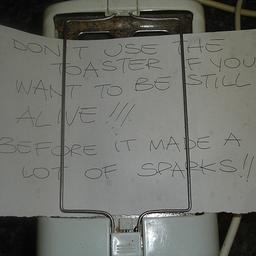 DON'T USE THE
TOASTER IF YOU
WANT TO BE STILL
ALIVE !!!
BEFORE IT MADE A
LOT OF SPARKS!!